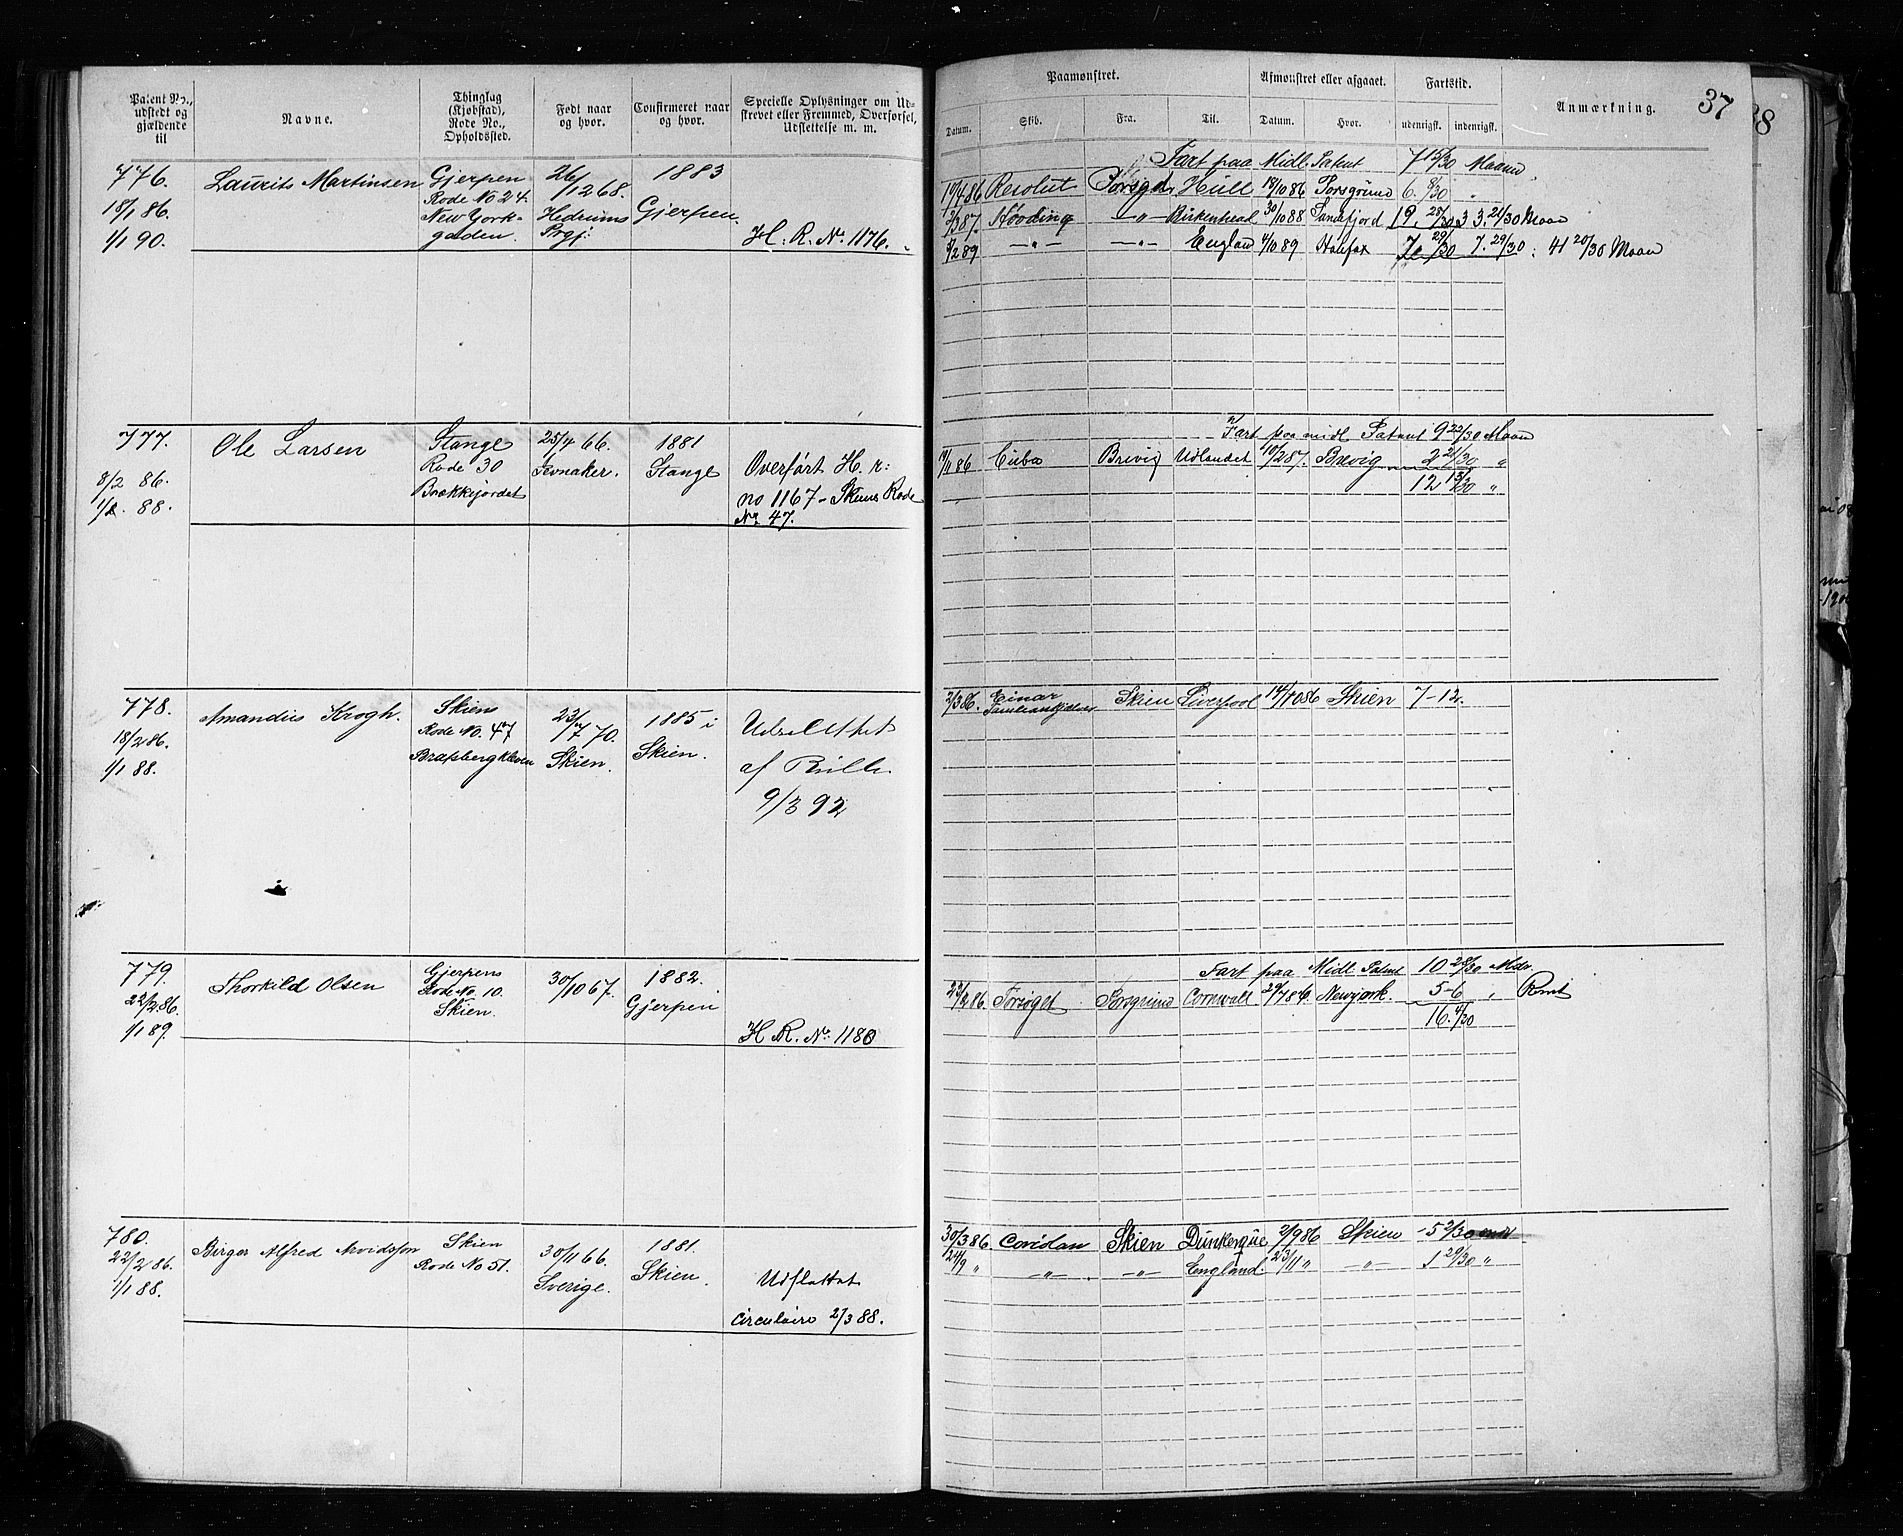 Patent No., udstedt og gjældende til
Navne.
Thinglag (Kjøbstad), Rode No., Opholdssted.
Født naar og hvor.
Confirmeret naar og hvor.
Specielle Oplysninger om Udskrevet eller Fremmed, Overførsel, Udslettelse m. m.
776.
18/1 86.
1/1 90.
Laurits Martinsen
Gjerpen
Rode No 24.
New York-
gaden.
26/12 68.
Hedrums
Prgj:
1883
Gjerpen.
H. R. No. 1176.
777.
8/2 86.
88.
Ole Larsen
Stange
Rode 30
Brækkejordet
25/4 66.
Jevnaker.
1881
Stange
Overført H. r:
no 1167 - Skiens Rode
No 47.
778.
18/2 86.
1/1 88.
Amandus Krogh.
Skiens
Rode No. 47
23/7 70.
Skien.
1885 i
Skien.
Udslettet
af Rulle
9/3 92
779.
22/2 86.
1/1 89.
Thorkild Olsen
Gjerpens
Rode No. 10.
Skien.
30/10 67.
1882.
Gjerpen
H. R. No. 1180
780.
22/2 86.
1/1 88.
Birger Alfred Arvidsson
Skien
Rode No 51.
30/11 66.
Sverige.
1881.
Skien.
Udflyttet
Circulaire 2/3 88.
37
38
Paamønstret.
Afmønstret eller afgaaet.
Fartstid.
Anmærkning.
Datum.
Skib.
Fra.
Til.
Datum.
Hvor.
udenrigsk.
indenrigsk.
Fart paa Midl. Patent 7 15/30 Maaned.
Resolut Porsgd. Hull 18/10 86 Porsgrund 6. 8/30 "
2/3 87. Høvding —"— Birkenhead 30/10 88 Sandefjord 19. 28/30 33. 21/30 Maan
2/2 89 —"— —"— England 4/10 89 Halifax 7. 29/30 7. 29/30 : 41 20/30 Maan
Fart paa midl Patent 9 22/30 Maan
Cuba Brevig Udlandet 10/2 87. Brevig 2 21/30 "
12 13/30 "
2/3 86. Einar Skien Liverpool 14/10 86 Skien 7-12.
Fart paa Midl. Patent 10 28/30 Mdr
23/2 86. Forsøget Porsgrund Cornwall 29/7 86. Newyork. 5-6 " Rømt
16. 4/30
30/3 86. Coridan Skien Dunkerque 2/9 86 Skien 5 2/30
24/9 " —"— —"— England. 23/11 " —"— 1 29/30 "